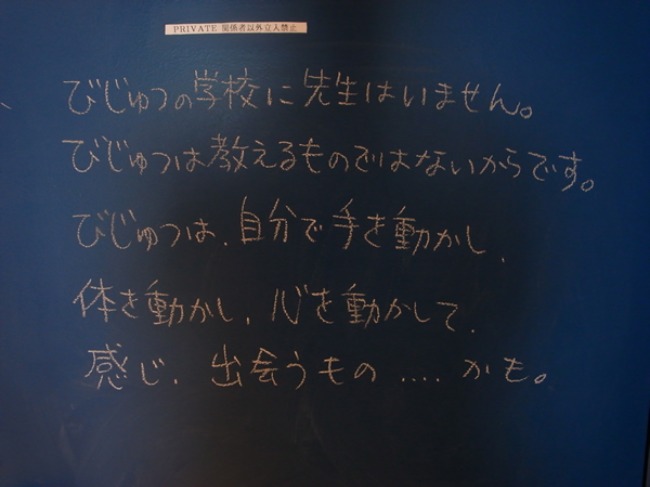 PRIVATE 関係者以外立入禁止
びじゅつの学校に先生はいません。
びじゅつは教えるものではないからです。
びじゅつは、自分で手を動かし、
体を動かし、心を動かして、
感じ、出会うもの‥‥かも。